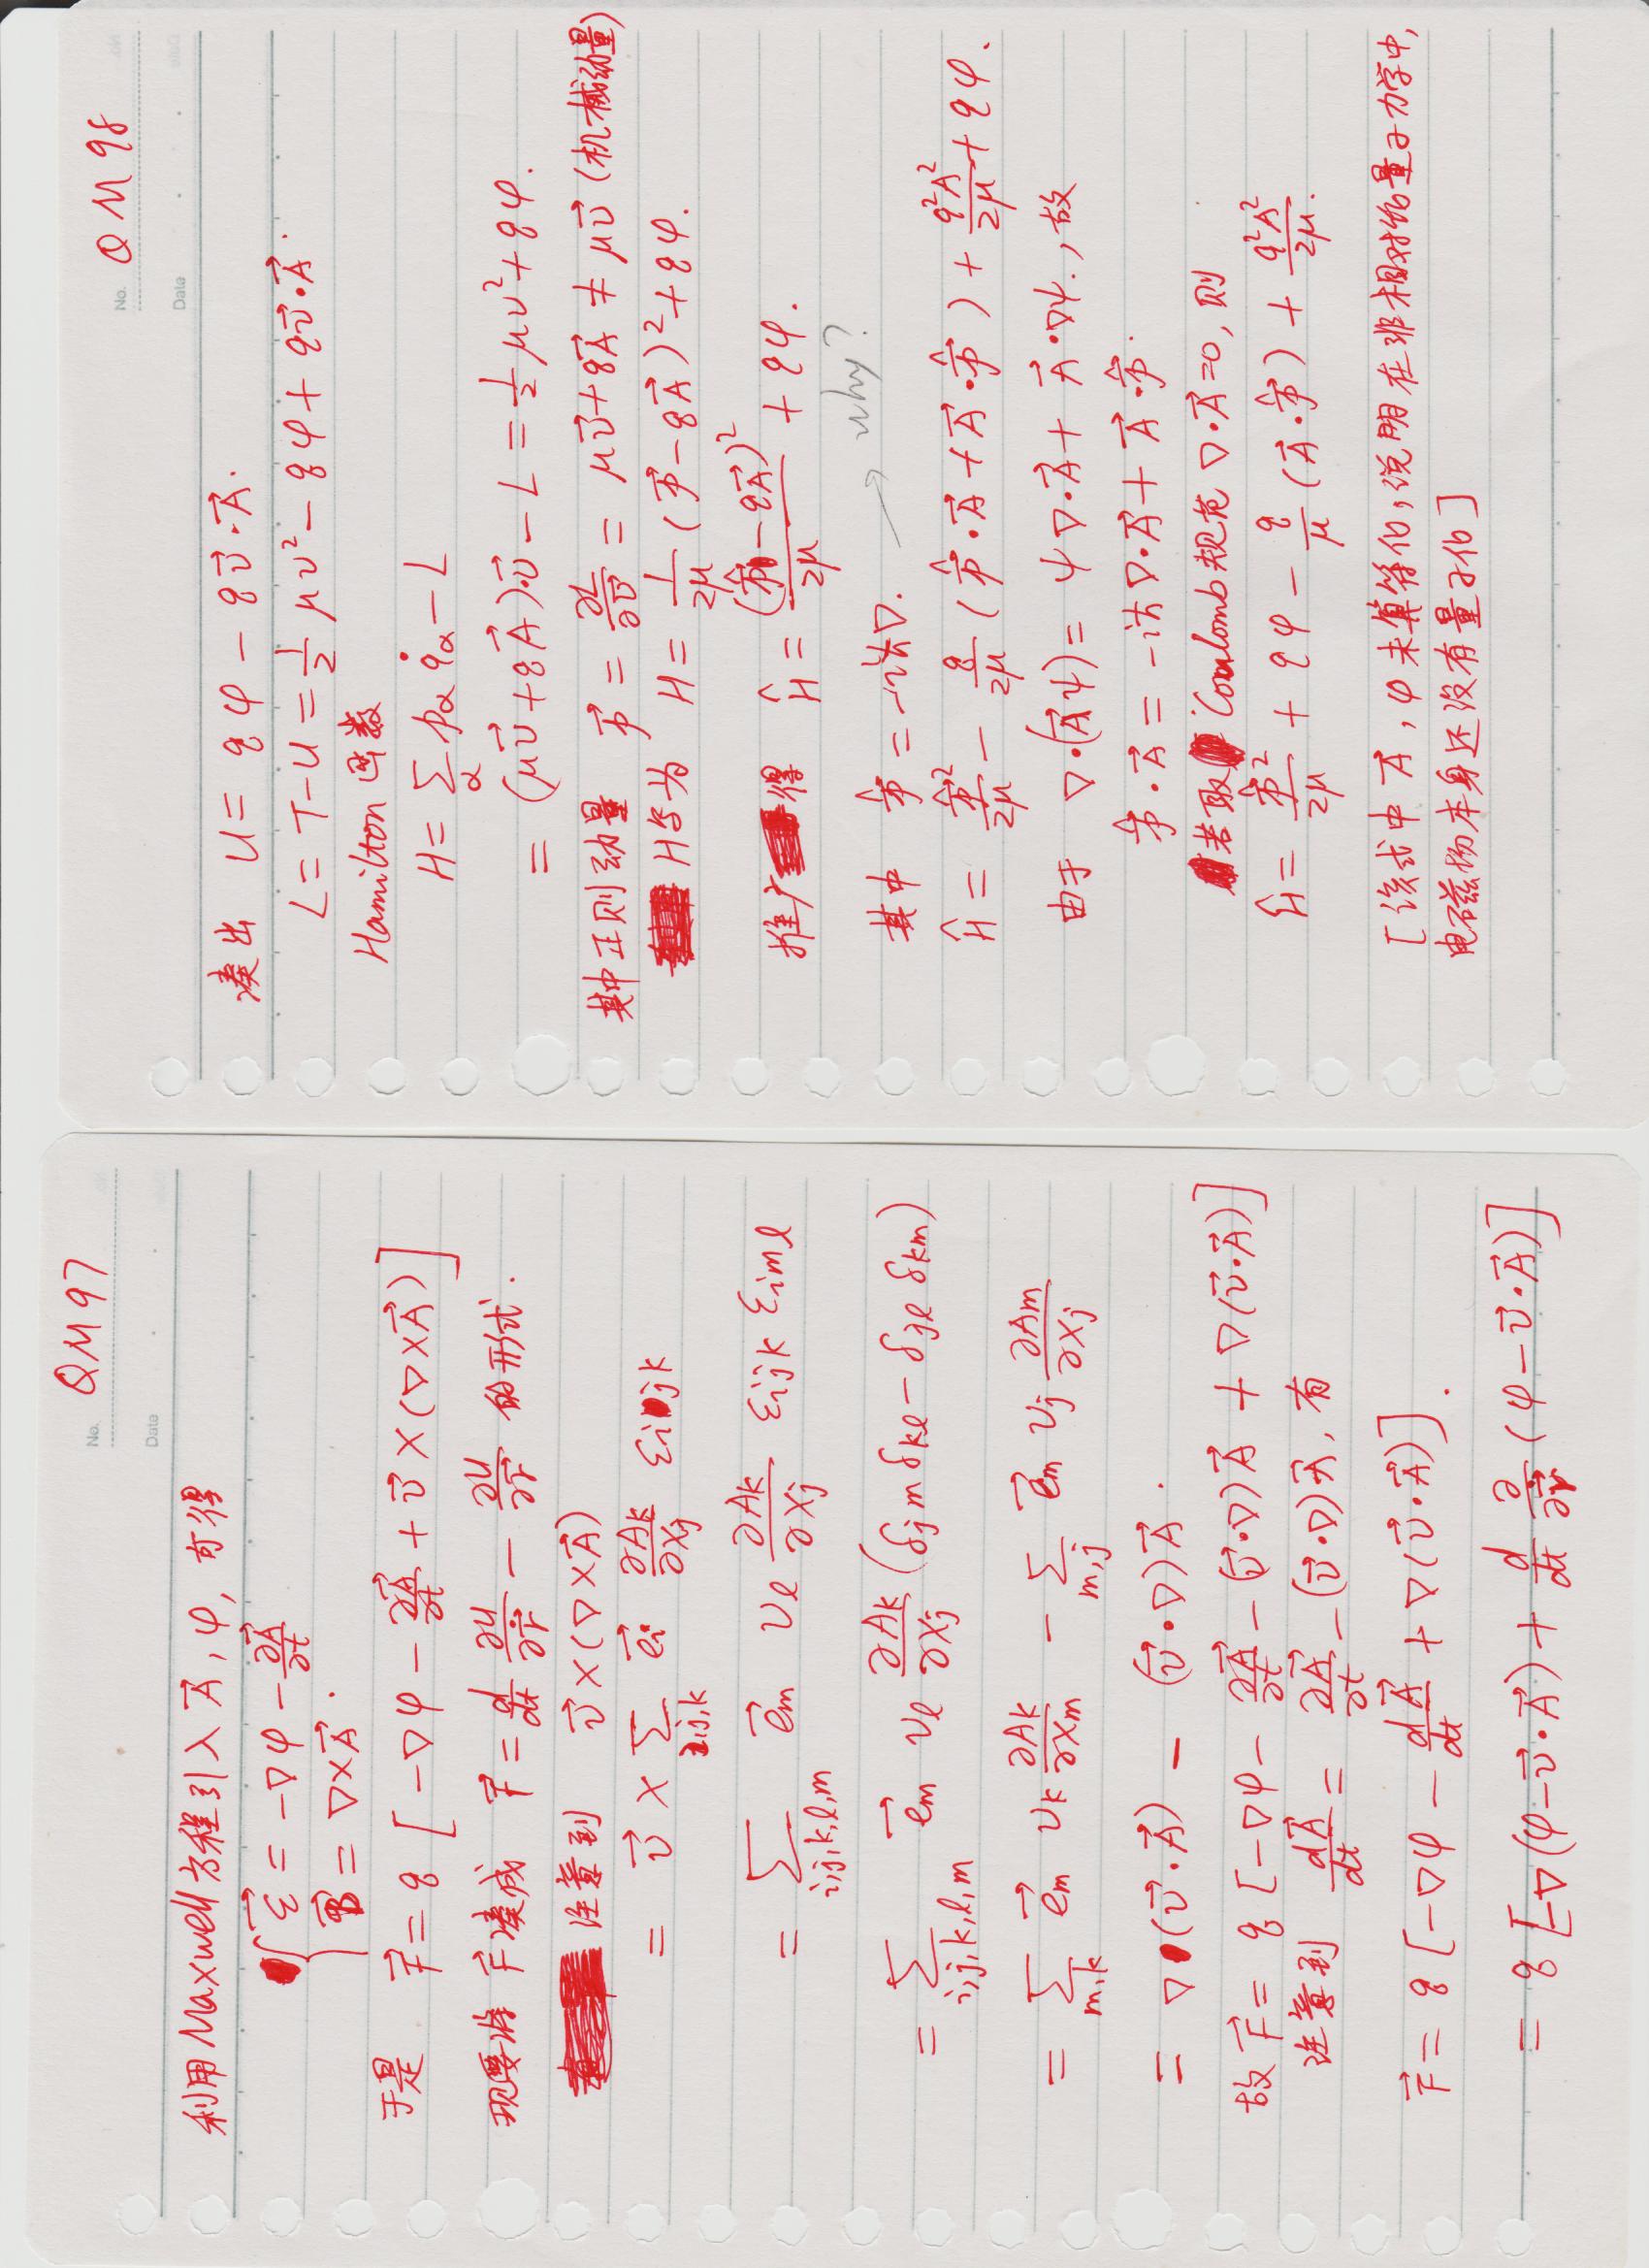 No. QM97
Date
利用Maxwell方程引入 \vec{A}, φ, 可得
{ \vec{ε} = -∇φ - ∂\vec{A}/∂t
\vec{B} = ∇×\vec{A}.
于是 \vec{F} = q [ -∇φ - ∂\vec{A}/∂t + \vec{v} × (∇×\vec{A}) ]
现要将 \vec{F} 凑成 \vec{F} = d/dt ∂U/∂\dot{\vec{r}} - ∂U/∂\vec{r} 的形式.
注意到 \vec{v}×(∇×\vec{A})
= \vec{v} × ∑_{i,j,k} \vec{e}_i ∂A_k/∂x_j ε_{ijk}
= ∑_{i,j,k,l,m} \vec{e}_m v_l ∂A_k/∂x_j ε_{ijk} ε_{iml}
= ∑_{i,j,k,l,m} \vec{e}_m v_l ∂A_k/∂x_j (δ_{jm} δ_{kl} - δ_{jl} δ_{km})
= ∑_{m,k} \vec{e}_m v_k ∂A_k/∂x_m - ∑_{m,j} \vec{e}_m v_j ∂A_m/∂x_j
= ∇(\vec{v}·\vec{A}) - (\vec{v}·∇)\vec{A}.
故 \vec{F} = q [ -∇φ - ∂\vec{A}/∂t - (\vec{v}·∇)\vec{A} + ∇(\vec{v}·\vec{A}) ]
注意到 d\vec{A}/dt = ∂\vec{A}/∂t - (\vec{v}·∇)\vec{A}, 有
\vec{F} = q [ -∇φ - d\vec{A}/dt + ∇(\vec{v}·\vec{A}) ].
= q [ -∇(φ-\vec{v}·\vec{A}) + d/dt ∂/∂\dot{\vec{r}} (φ-\vec{v}·\vec{A}) ]
No. QM98
Date
凑出 U = qφ - q\vec{v}·\vec{A}.
L = T-U = 1/2 μv² - qφ + q\vec{v}·\vec{A}.
Hamilton 函数
H = ∑_α p_α \dot{q}_α - L
= (μ\vec{v}+q\vec{A})·\vec{v} - L = 1/2 μv² + qφ.
其中正则动量 \vec{p} = ∂L/∂\vec{v} = μ\vec{v}+q\vec{A} ≠ μ\vec{v} (机械动量)
H写为 H = 1/2μ (\vec{p}-q\vec{A})² + qφ.
推广得 \hat{H} = (\hat{\vec{p}}-q\vec{A})²/2μ + qφ.
其中 \hat{\vec{p}} = -iħ∇. → why?
\hat{H} = \hat{\vec{p}}²/2μ - q/2μ (\hat{\vec{p}}·\vec{A}+\vec{A}·\hat{\vec{p}}) + q²A²/2μ + qφ.
由于 ∇·(\vec{A}ψ) = ψ∇·\vec{A} + \vec{A}·∇ψ., 故
\hat{\vec{p}}·\vec{A} = -iħ∇·\vec{A} + \vec{A}·\hat{\vec{p}}.
若取 Coulomb规范 ∇·\vec{A}=0, 则
\hat{H} = \hat{\vec{p}}²/2μ + qφ - q/μ (\vec{A}·\hat{\vec{p}}) + q²A²/2μ.
[该式中 \vec{A}, φ 未算符化, 说明在非相对论量子力学中,
电磁场本身还没有量子化]